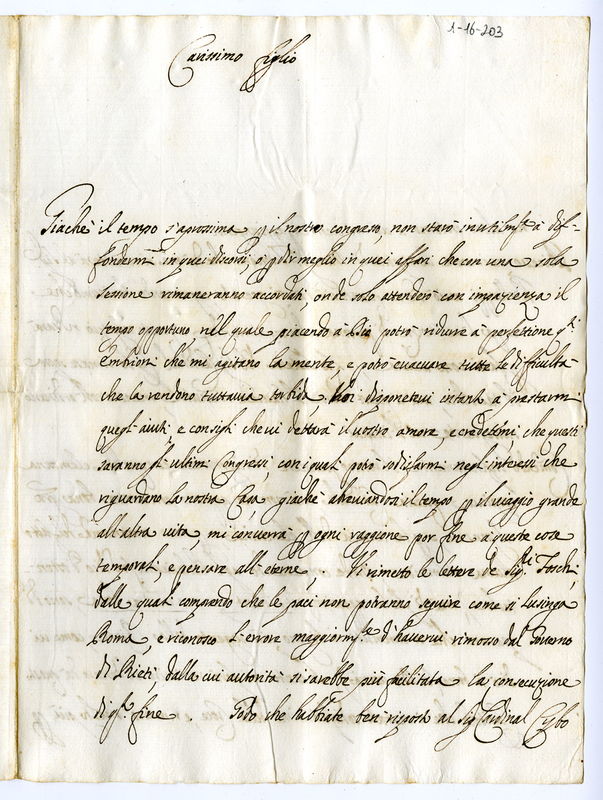 1-16-203
Carissimo Figlio
Giachè il tempo s'aprossima p il nostro congresso, non starò inutilmte à dif-
fondermi in quei discorsi, ò p dir meglio in quei affari che con una sola
sessione rimaneranno accordati, onde solo attenderò con impazienza il
tempo opportuno nel quale piacendo à Dio potrò ridurre à perfezione qti
embrioni che mi agitano la mente, e potrò evacuare tutte le difficultà
che la rendono tuttavia torbida. Voi disponetevi intanto a prestarmi
quegl'aiuti e consigli che vi dettarà il vostro amore, e credetemi, che questi
saranno gl'ultimi Congressi, con i quali potrò sodisfarmi negl'interessi che
riguardano la nostra Casa, giachè abreviandosi il tempo p il viaggio grande
all'altra vita, mi converrà p ogni raggione por fine a queste cose
temporali, e pensare all'eterne. Vi rimetto le lettere de Sigri Foschi,
dalle quali comprendo che le paci non potranno seguire come si lusinga
Roma, e riconosco l'errore maggiormte d'havervi rimosso dal Governo
di Rieti, dalla cui autorità si sarebbe più facilitata la consecuzione
di qto fine. Godo che habbiate ben risposto al Sig Cardinal Cybo